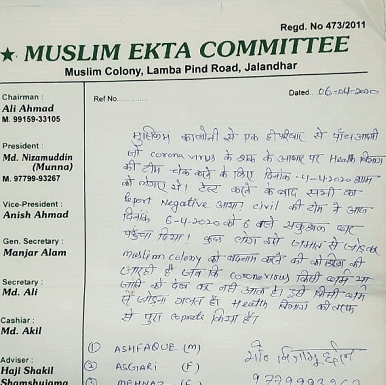 Regd. No 473/2011
★ MUSLIM EKTA COMMITTEE
Muslim Colony, Lamba Pind Road, Jalandhar
Chairman :
Ali Ahmad
M. 99159-33105
President :
Md. Nizamuddin
(Munna)
M. 97799-93267
Vice-President :
Anish Ahmad
Gen. Secretary :
Manjar Alam
Secretary :
Md. Ali
Cashiar :
Md. Akil
Adviser :
Haji Shakil
Shamshujama
Ref No.............
Dated....06-04-2020
मुस्लिम कालोनी से एक ही परिवार से पाँच आदमी
जो corona virus के शक के आधार पर Health विभाग
की टीम चेक करने के लिए दिनांक -4-2020 शाम
को ले गए थे। टेस्ट करने के बाद सभी का
Report Negative आया। civil की टीम ने आज
दिनांक 6-4-2020 को 6 बजे सकुशल घर
पहुंचा दिया। कुछ लोग इसे जमात से जोड़कर
muslim colony को बदनाम करने की कोशिश की
जा रही है जब कि coronavirus किसी धर्म या
जाति को देख कर नहीं आता है। इसे किसी धर्म
से जोड़ना गलत है। Health विभाग की तरफ
से पुरा किया है।
① ASHFAQUE (M)
② ASGARI (F)
③ MEHNAZ (F)